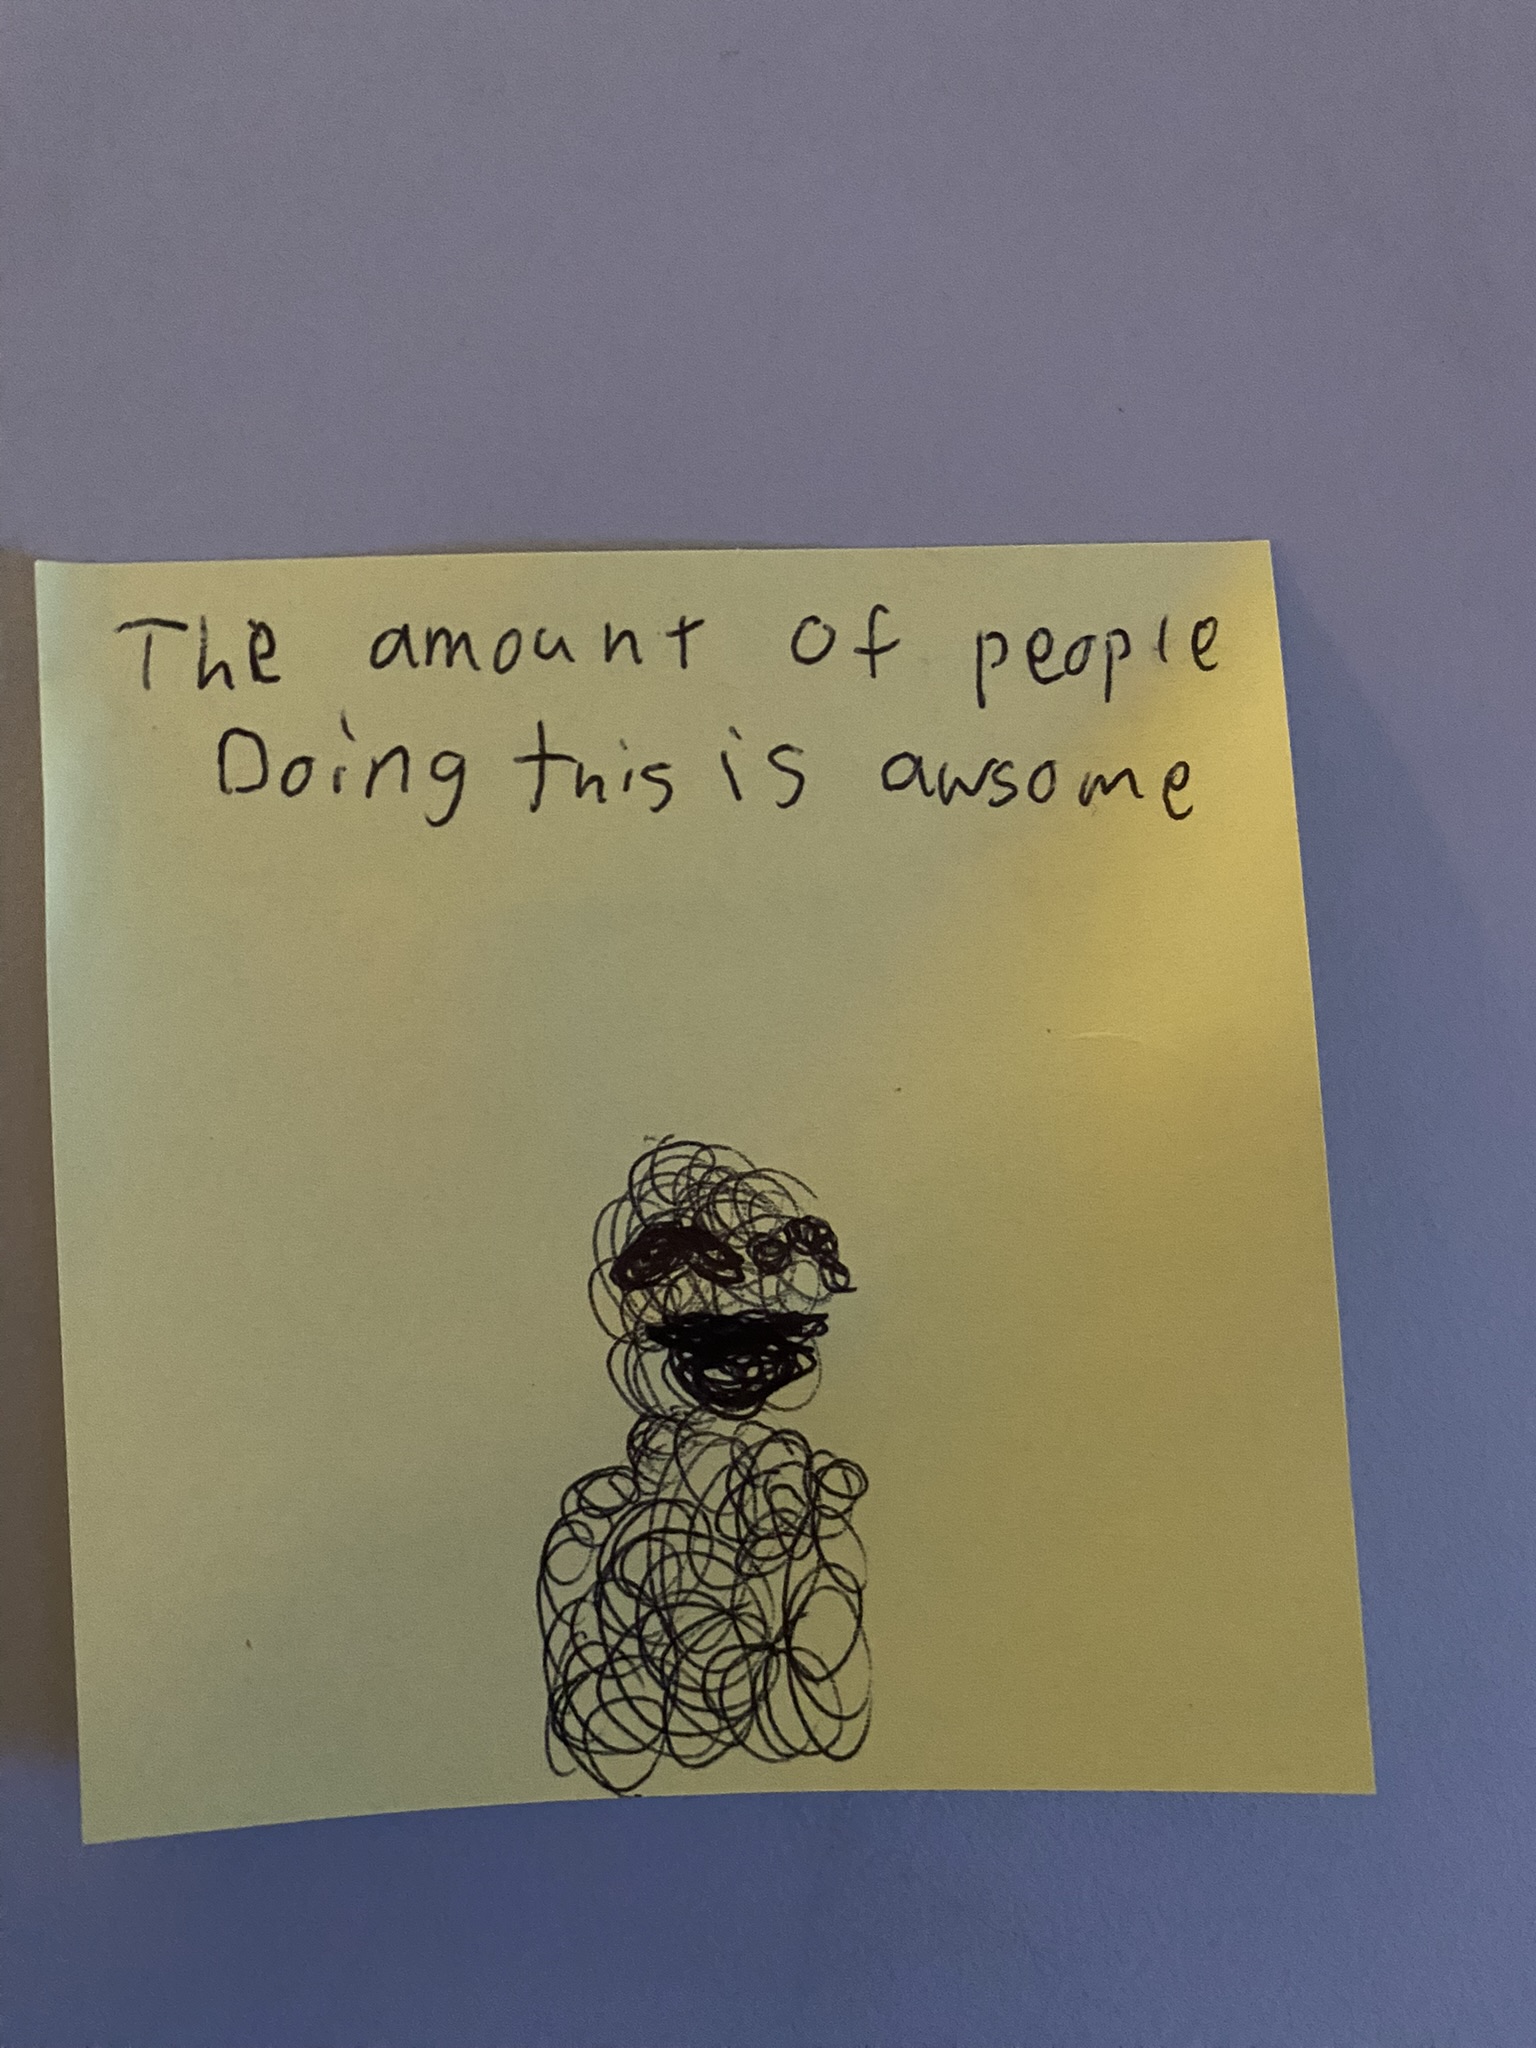 The amount of people
Doing this is awsome